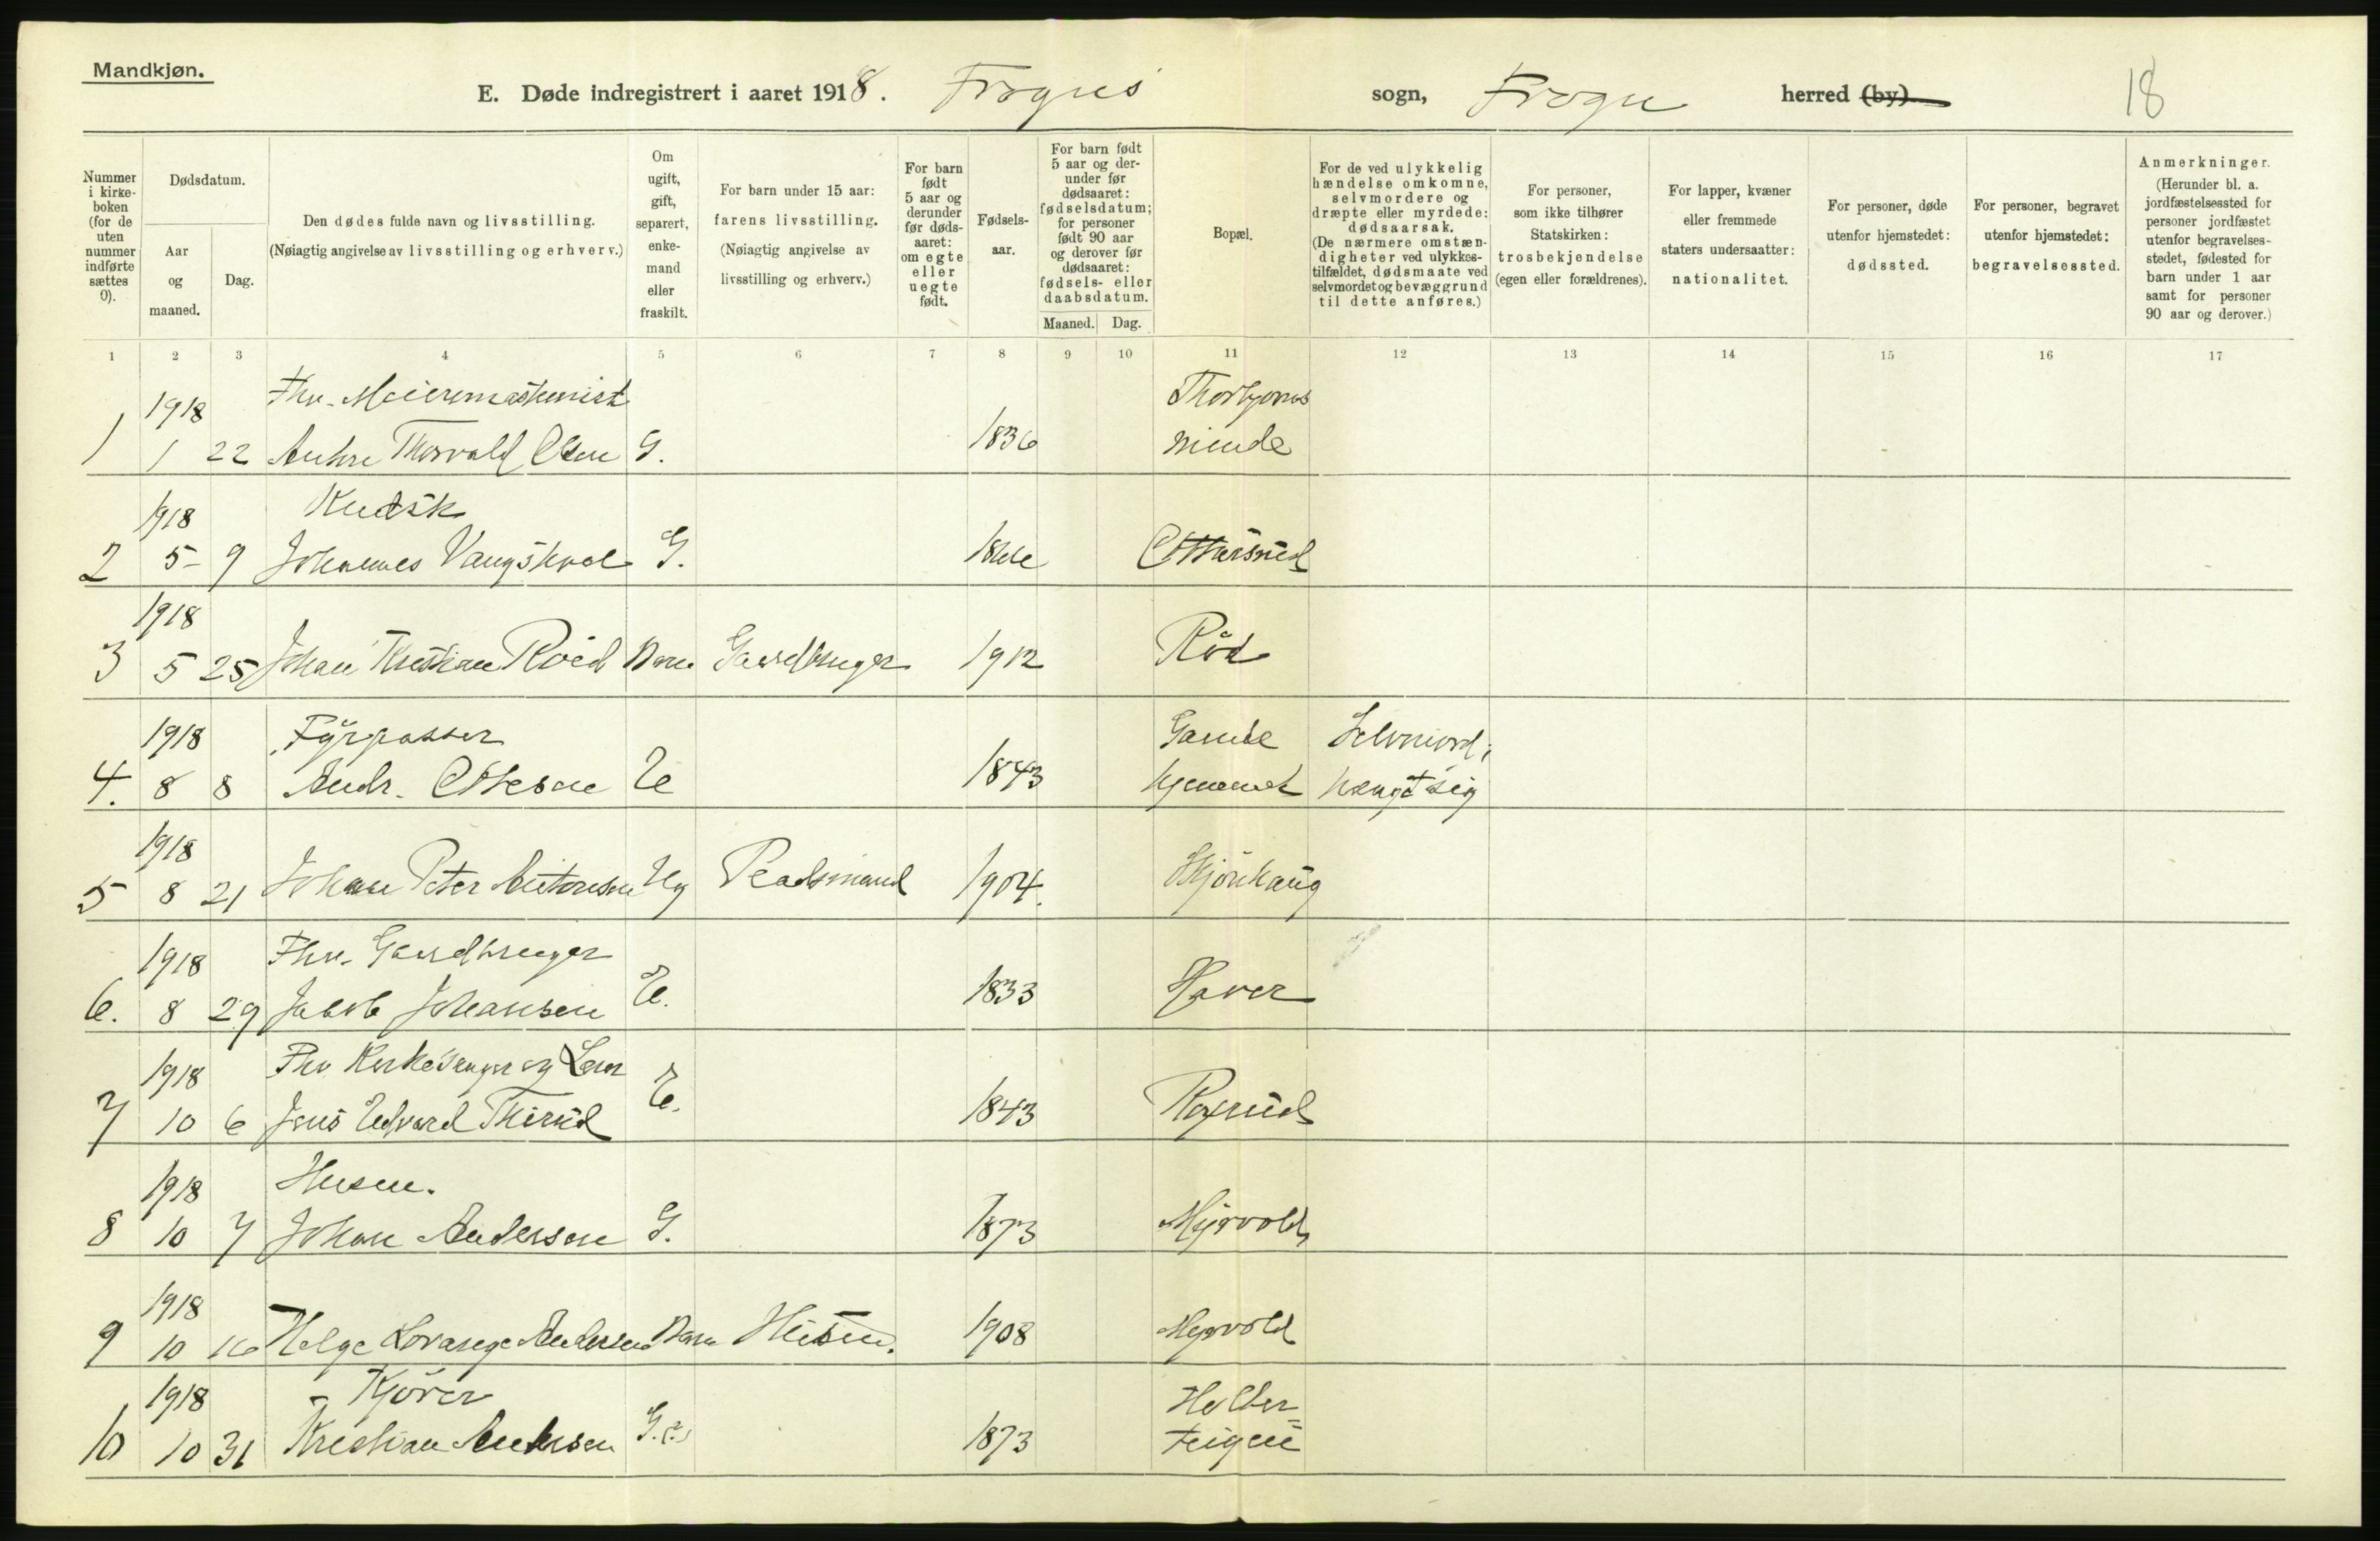 Mandkjøn.
E. Døde indregistrert i aaret 1918. Frogns sogn, Frogn herred (by)
18
Nummer i kirke-boken (for de uten nummer indførte sættes 0).
Dødsdatum.
Aar og maaned.
Dag.
Den dødes fulde navn og livsstilling.
(Nøiagtig angivelse av livsstilling og erhverv.)
Om ugift, gift, separert, enke-mand eller fraskilt.
For barn under 15 aar: farens livsstilling.
(Nøiagtig angivelse av livsstilling og erhverv.)
For barn født 5 aar og derunder før døds-aaret: om egte eller uegte født.
Fødsels-aar.
For barn født 5 aar og der-under før dødsaaret: fødselsdatum; for personer født 90 aar og derover før dødsaaret: fødsels- eller daabsdatum.
Maaned. Dag.
Bopæl.
For de ved ulykkelig hændelse omkomne, selvmordere og dræpte eller myrdede: dødsaarsak.
(De nærmere omstæn-digheter ved ulykkes-tilfældet, dødsmaate ved selvmordet og bevæggrund til dette anføres.)
For personer, som ikke tilhører Statskirken: trosbekjendelse (egen eller forældrenes).
For lapper, kvæner eller fremmede staters undersaatter: nationalitet.
For personer, døde utenfor hjemstedet: dødssted.
For personer, begravet utenfor hjemstedet: begravelsessted.
Anmerkninger.
(Herunder bl. a. jordfæstelsessted for personer jordfæstet utenfor begravelses-stedet, fødested for barn under 1 aar samt for personer 90 aar og derover.)
1 2 3 4 5 6 7 8 9 10 11 12 13 14 15 16 17
1918 Fhv. Meierimaskinist
1 1 22 Thorvald Olsen G. 1836
1918 Kudsk
2 5 9 Johannes G. Ottarsrud
1918
3 5 25 Johan Kristian Röed Barn Gaardbruger 1912 Röd
1918 Fyrpasser Gamle Selvmord;
4. 8 8 Andr. Ottesen E 1843 hjemmet hængt sig
1918
5 8 21 Johan Peter Antonsen Ug Pladsmand 1904.
1918 Fhv. Gaardbruger
6. 8 29 Jakob Johansen E. 1833 Haver
1918 Fhv Kirkesanger og Lærer
7 10 6 Jens Edvard Thirud E. 1843
1918 Husm.
8 10 7 Johan Andersen G. 1873 Myrvold
1918
9 10 16 Helge Andersen Barn Husm. 1908 Myrvold
1918 Kjörer Holter-
10 10 31 Kristian Andersen G.(?) 1873 teigen